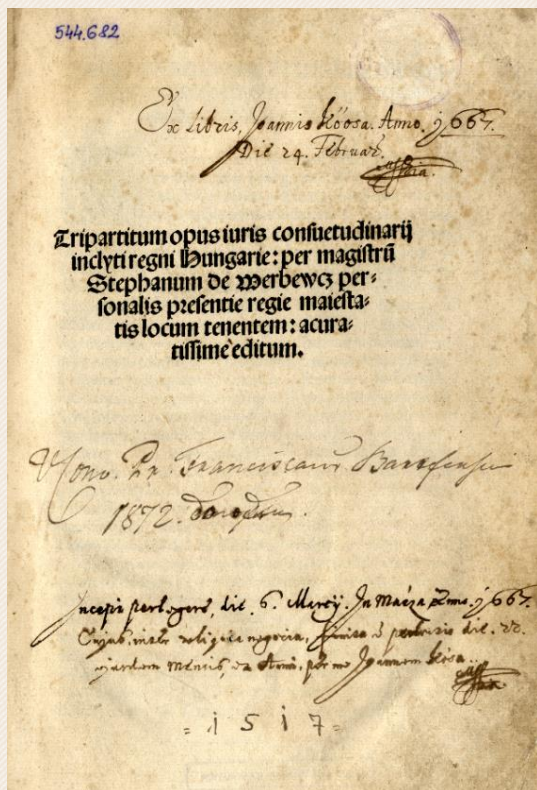 544.682
Ex Libris Joannis Kóosa. Anno. j667.
Die 24. Februar.
Tripartitum opus iuris consuetudinarij
inclyti regni Hungarie: per magistrũ
Stephanum de Werbewcz per-
sonalis presentie regie maiesta-
tis locum tenentem: acura-
tissime editum.
Conv. Franciscan
1872.
Incepi perlegere, die 6. Martij. In Anno. j667.
inter reliqua negocia, die. 22.
Mensis, Anni, per me Joannem Kósa.
= i 5 i 7 =